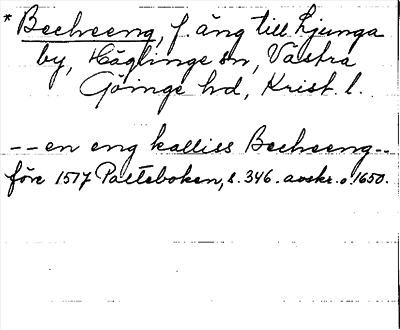 * Becheeng, f. äng till Ljunga
by, Häglinge sn, Västra
Göinge hd, Krist. l.
-- en eng kalliss Becheeng --
före 1517 Palteboken, s. 346. avskr. o 1650.